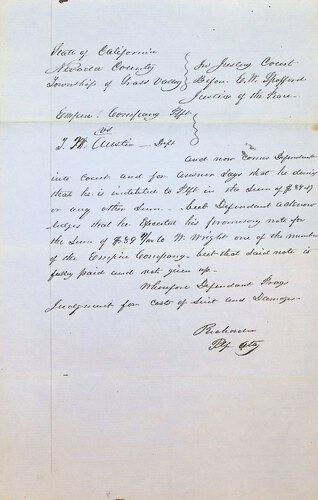 State of California
Nevada County
Township of Grass Valley
In Justice Court
Before C. W. Spofford
Justice of the Peace
Empire Company Plff
vs
T. Austin Deft
And now Comes Defendant
into court and for answer says that he denies
that he is indebted to Plff in the Sum of
or any other Sum but Defendant acknow
ledges that he Executed his promissory note for
the Sum of $99 to W. Wright one of the members
of the Empire Company but that said note is
fully paid and not given up
Wherefore Defendant Prays
Judgement for cost of Suit and Damages
Atty